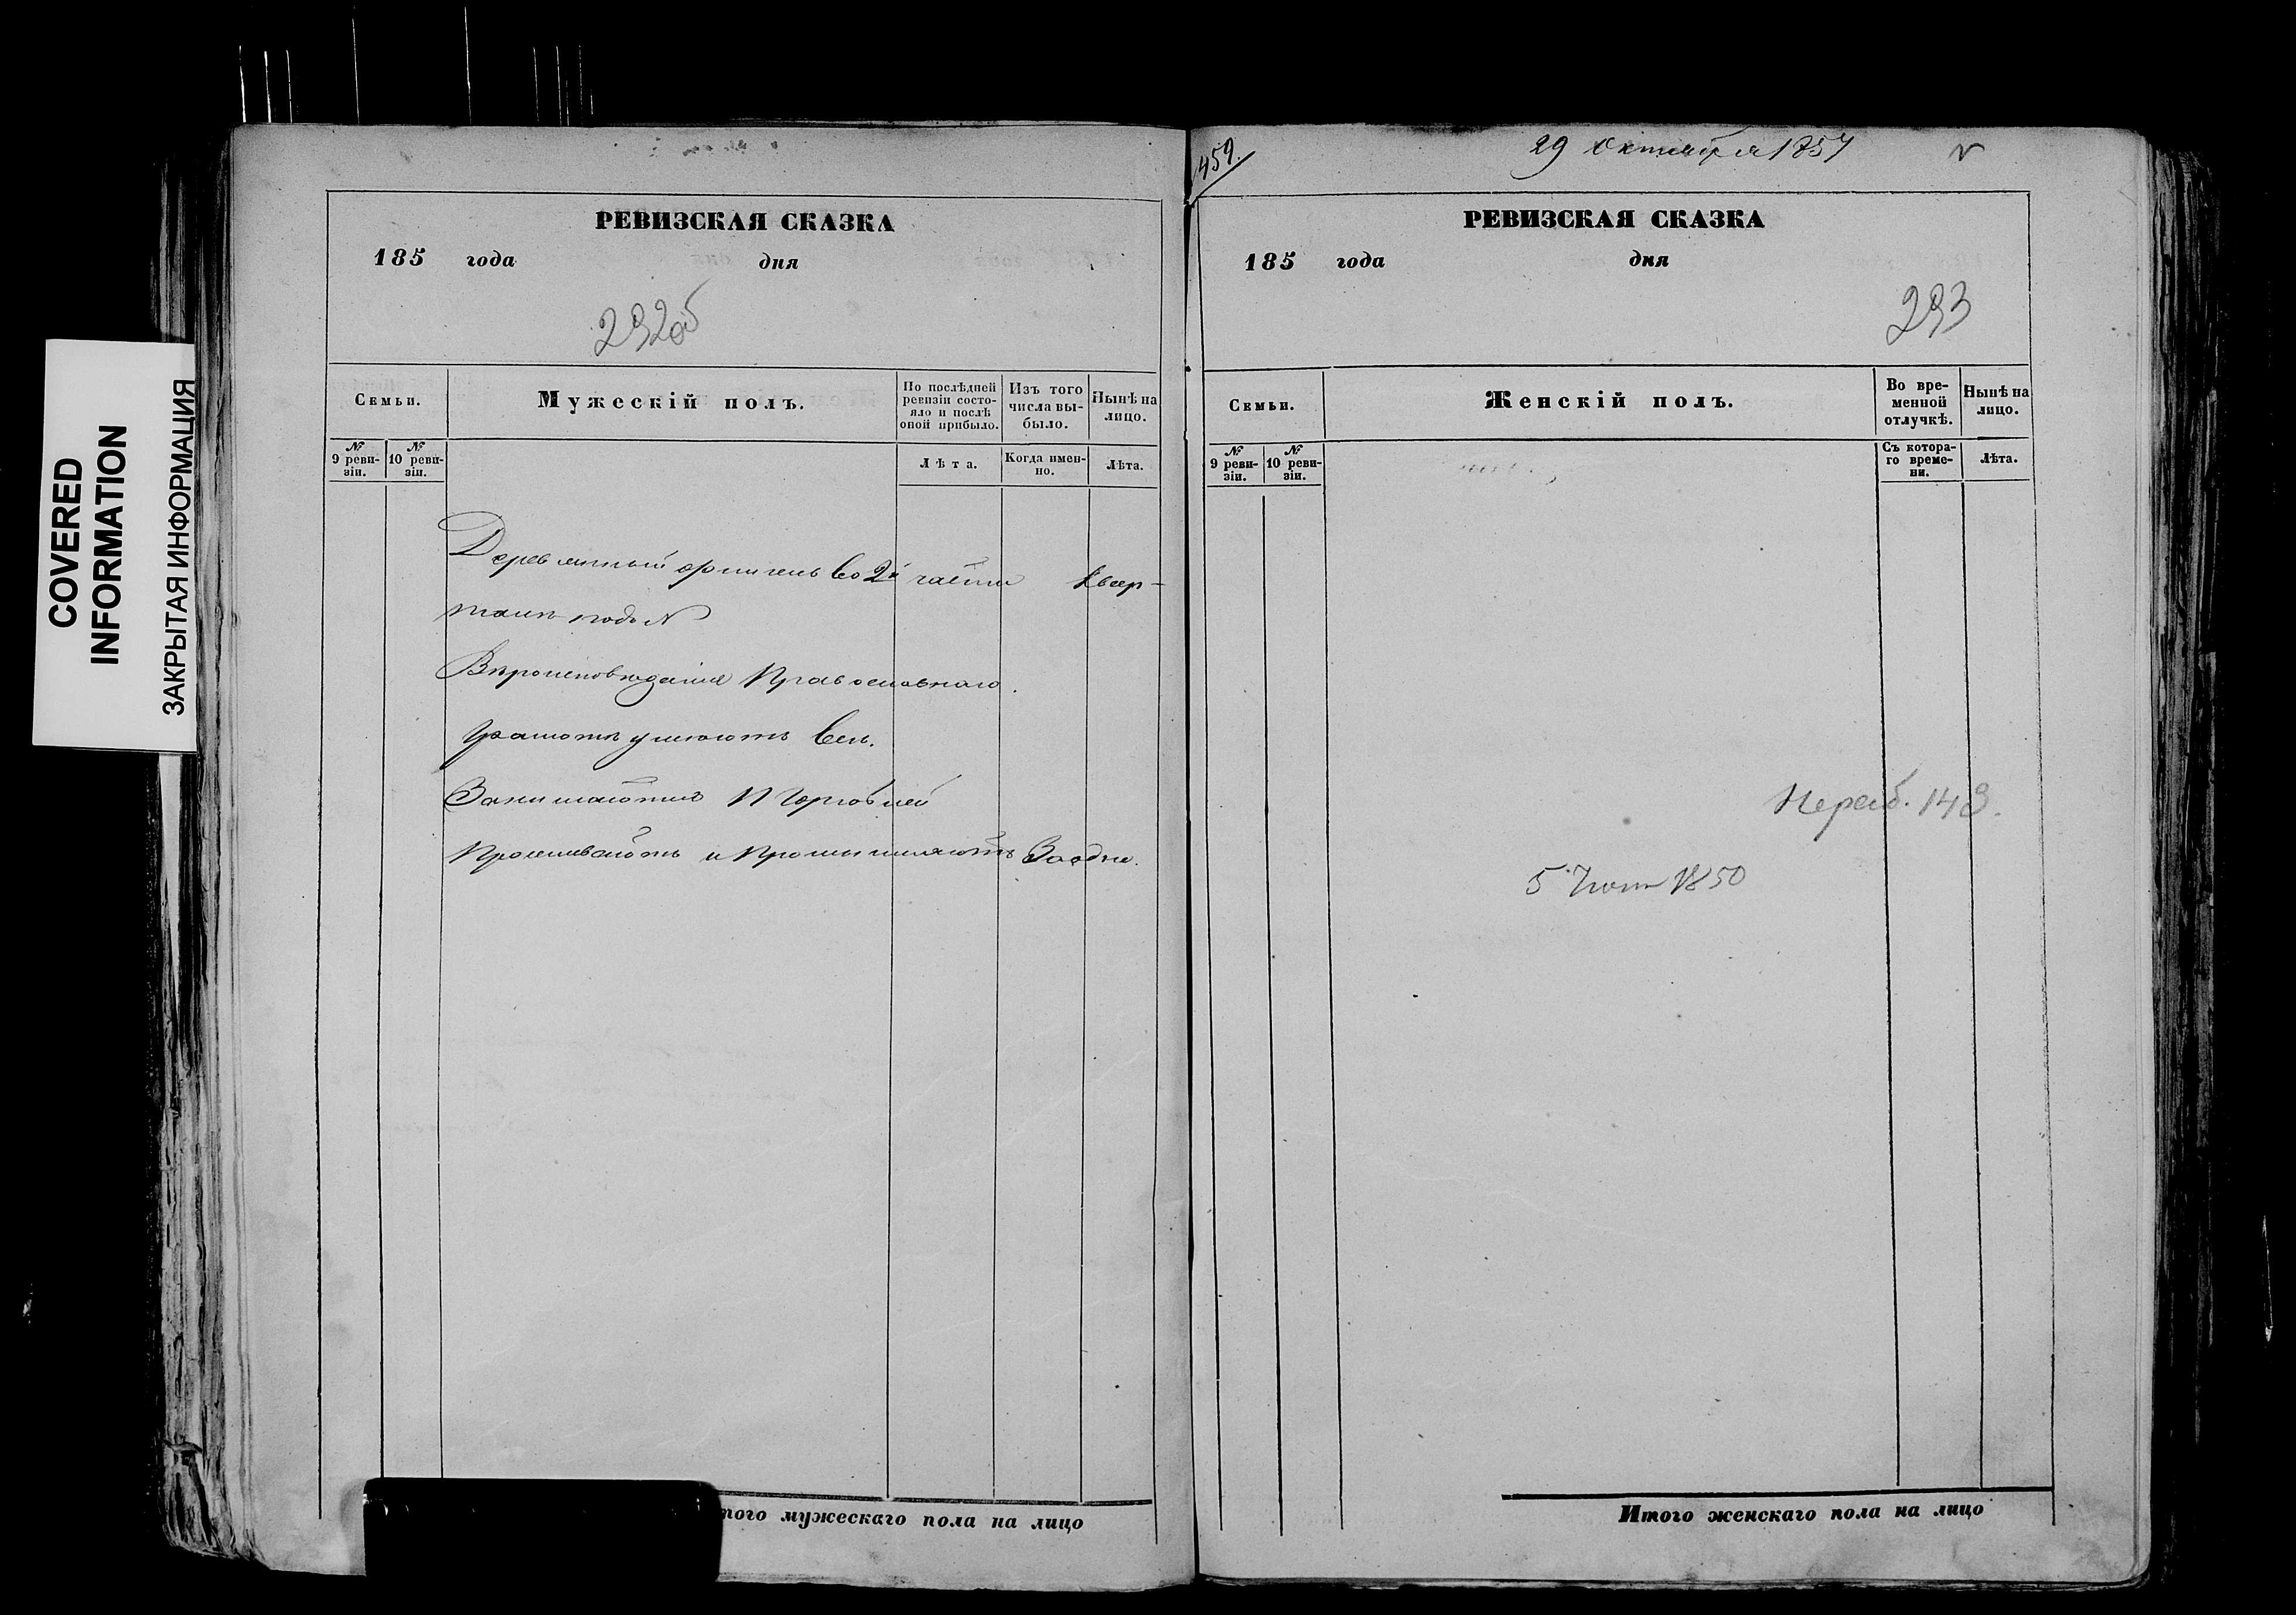 COVERED
INFORMATION
ЗАКРЫТАЯ ИНФОРМАЦИЯ
РЕВИЗСКАЯ СКАЗКА
185 года дня
292об
Семьи.
Мужескій полъ.
По послѣдней ревизіи состояло и послѣ оной прибыло.
Изъ того числа выбыло.
Нынѣ на лицо.
№ 9 ревизіи.
№ 10 ревизіи.
Лѣта.
Когда именно.
Лѣта.
Деревянный флигель во 2й части Квар-
талѣ подъ №
Вѣроисповѣданія Православнаго.
Грамотѣ умеютъ Всѣ.
Занимаются Торговлей
Проживаютъ и Промышляютъ Заодно.
того мужескаго пола на лицо
459.
29 Октября 1857
РЕВИЗСКАЯ СКАЗКА
185 года дня
293
Семьи.
Женскій полъ.
Во временной отлучкѣ.
Нынѣ на лицо.
№ 9 ревизіи.
№ 10 ревизіи.
Съ котораго времени.
Лѣта.
5 1850
Итого женскаго пола на лицо